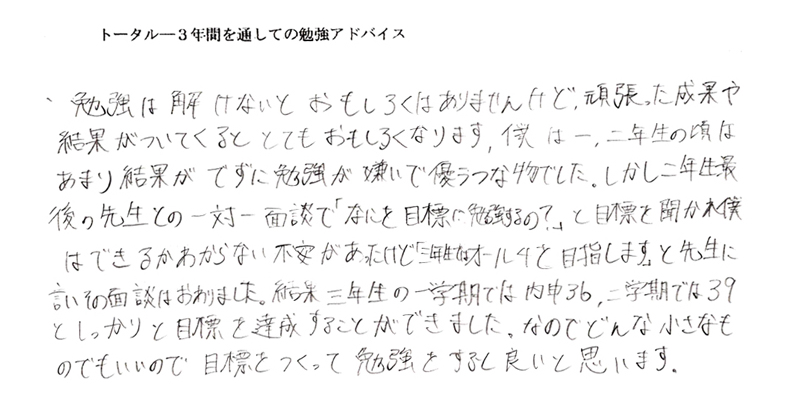 トータル―3年間を通しての勉強アドバイス
、勉強は解けないとおもしろくはありませんけど、頑張った成果や
結果がついてくるととてもおもしろくなります。僕は一、二年生の頃は
あまり結果がでずに勉強が嫌いで優うつな物でした。しかし二年生最
後の先生との一対一面談で「なにを目標に勉強するの?」と目標を聞かれ僕
はできるかわからない不安があったけど「三年生はオール4を目指します」と先生に
言いその面談はおわりました。結果三年生の一学期では内申36、二学期では39
としっかりと目標を達成することができました。なのでどんな小さなも
のでもいいので目標をつくって勉強をすると良いと思います。